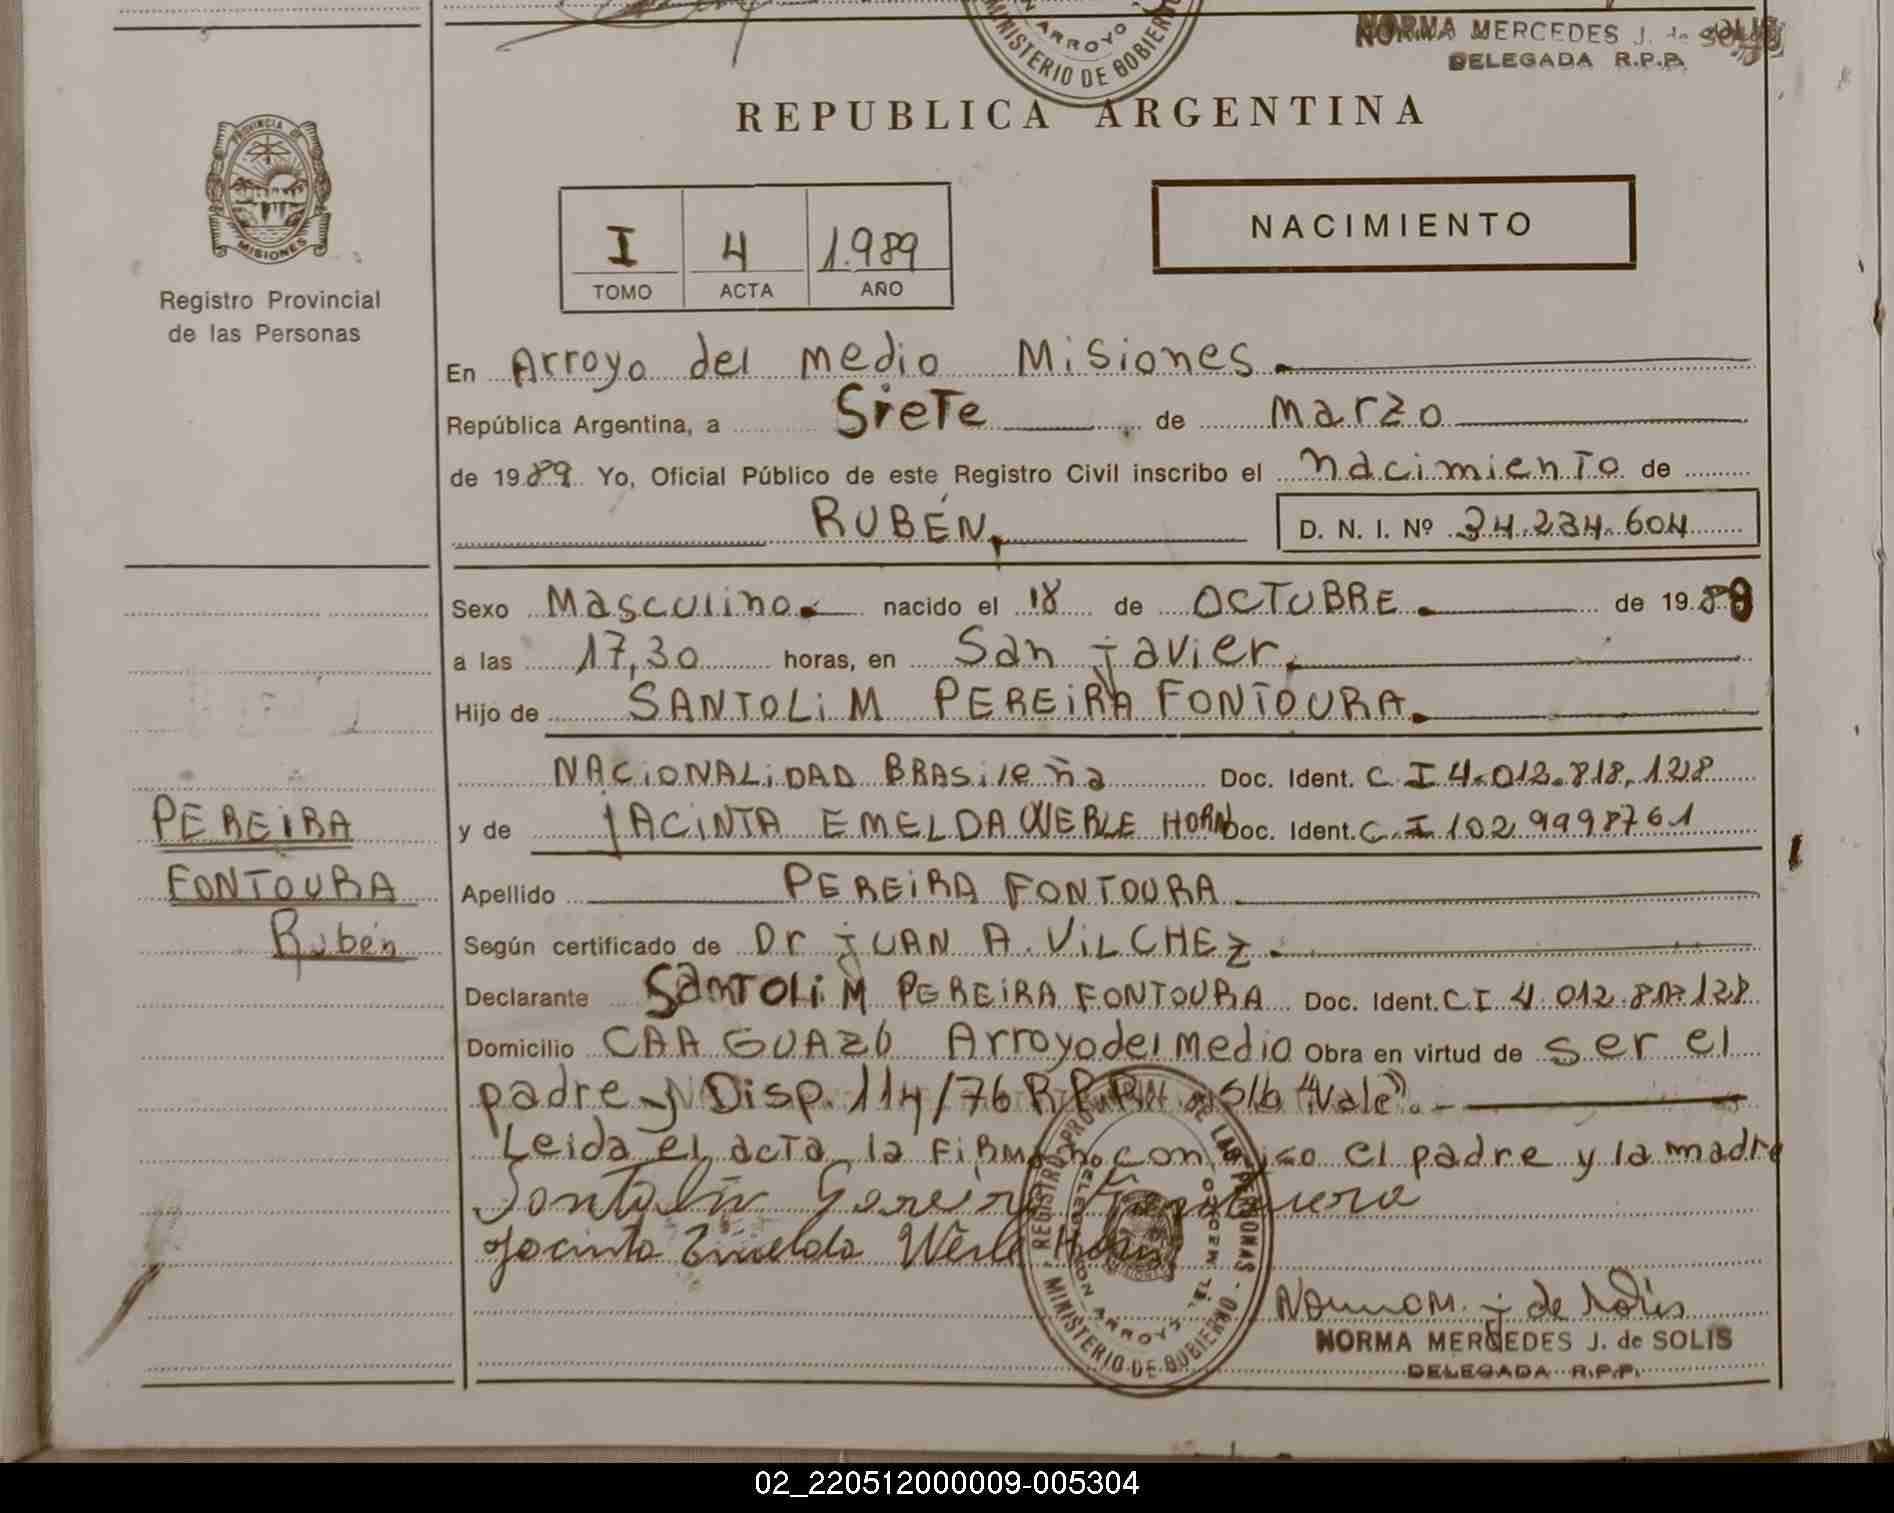 MINISTERIO DE GOBIERNO
ARROYO
NORMA MERCEDES J. de SOLIS
DELEGADA R.P.P.
REPUBLICA ARGENTINA
PROVINCIA DE
MISIONES
Registro Provincial
de las Personas
I 4 1.989
TOMO ACTA AÑO
NACIMIENTO
En Arroyo del medio Misiones
República Argentina, a Siete de Marzo
de 1989 Yo, Oficial Público de este Registro Civil inscribo el nacimiento de
RUBÉN D. N. I. Nº 34.234.604
Sexo Masculino nacido el 18 de OCTUBRE de 1988
a las 17,30 horas, en San javier
Hijo de SANTOLiM PEREiRA FONTOURA
NACiONALiDAD BRASileña Doc. Ident. C I 4.012.818.128
y de jACiNTA EMELDA WERLE HORN Doc. Ident. C.I 102 9998761
Apellido PEREiRA FONTOURA
PEREiRA
FONTOURA
Rubén
Según certificado de Dr jUAN A. ViLCHEz
Declarante SANTOLiM PEREiRA FONTOURA Doc. Ident. CI 4 012 818 128
Domicilio CAAGUAZÚ Arroyo del medio Obra en virtud de ser el
padre y Disp. 114/76 R.P.P. S/b "Vale".
Leida el acta la FiRMAN conmigo el padre y la madre
Santolin Pereira Fontoura
Jacinta Emelda Werle Horn
REGISTRO PROVINCIAL DE LAS PERSONAS - MINISTERIO DE GOBIERNO
DELEGACION ARROYO DEL MEDIO
Norma M. j de Solis
NORMA MERCEDES J. de SOLIS
DELEGADA R.P.P.
02_220512000009-005304